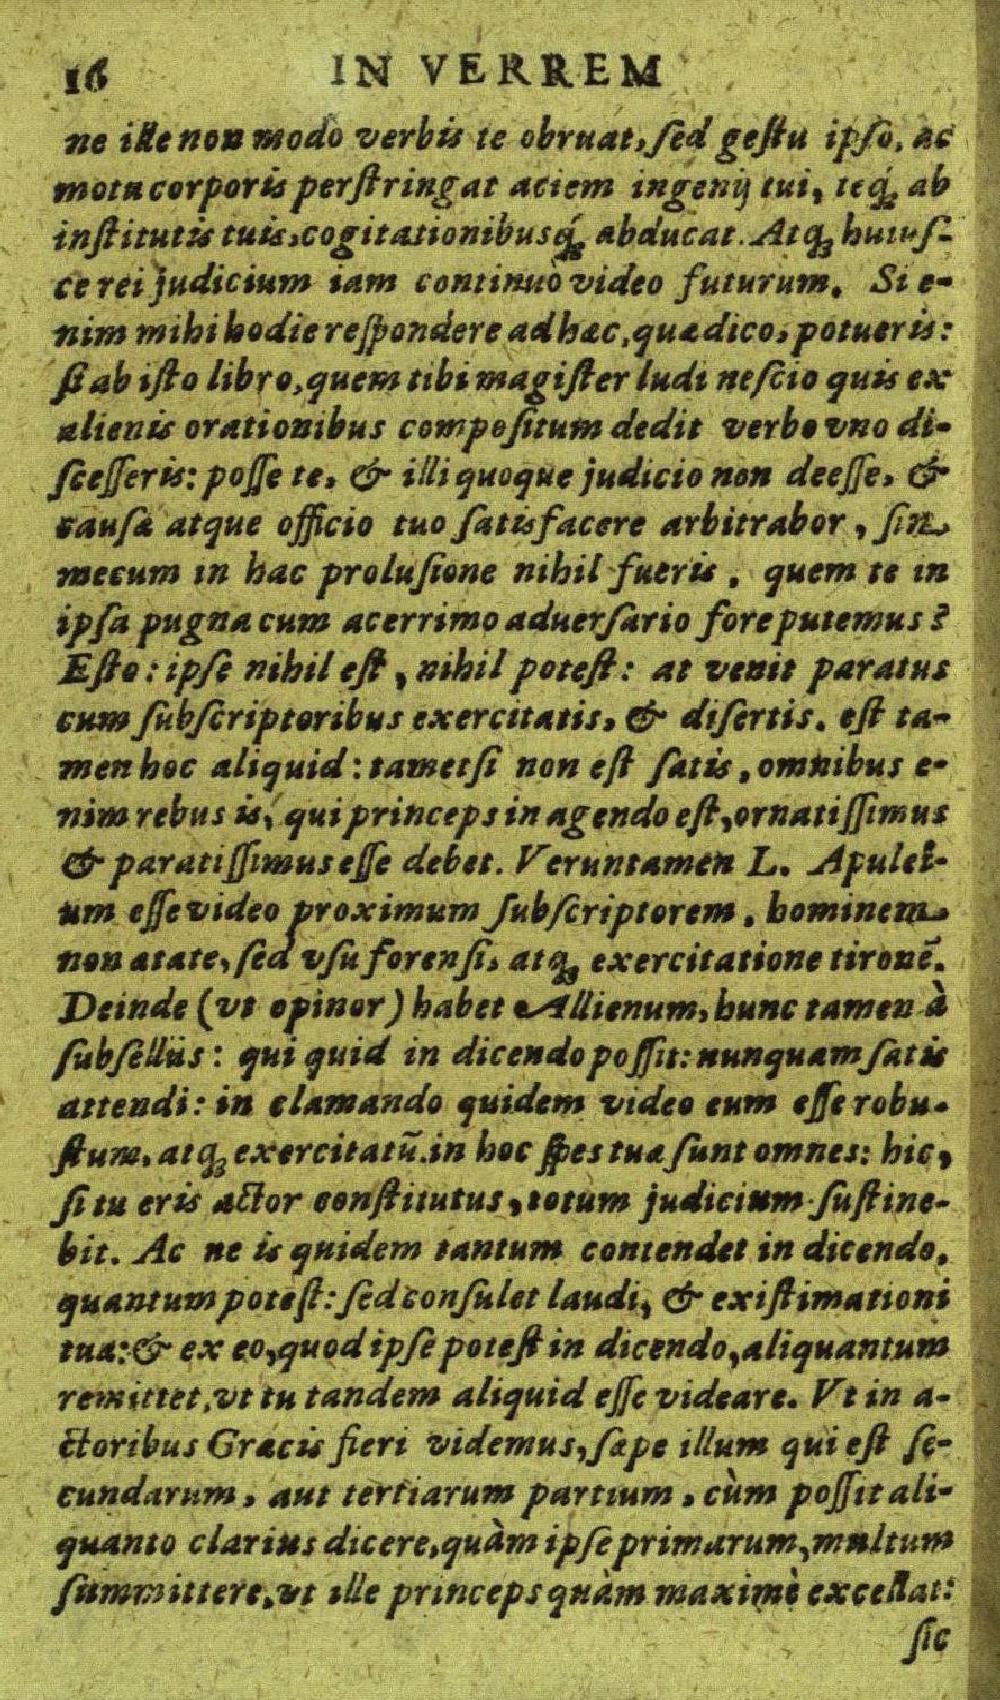 16 IN VERREM
ne ille non modo verbis te obruat, ſed geſtu ipſo, ac
motu corporis perſtringat aciem ingenij tui, teq́; ab
inſtitutis tuis, cogitationibusq́; abducat. Atq; huiuſ-
ce rei judicium iam continuò video futurum. Si e-
nim mihi hodie reſpondere ad hæc, quæ dico, potueris:
ſi ab iſto libro, quem tibi magiſter ludi neſcio quis ex
alienis orationibus compoſitum dedit verbo vno di-
ſceſſeris: poſſe te, & illi quoque judicio non deeſſe, &
cauſæ atque officio tuo ſatisfacere arbitrabor, ſin
mecum in hac proluſione nihil fueris, quem te in
ipſa pugna cum acerrimo aduerſario fore putemus?
Eſto: ipſe nihil eſt, nihil poteſt: at venit paratus
cum ſubſcriptoribus exercitatis, & diſertis. eſt ta-
men hoc aliquid: tametſi non eſt ſatis, omnibus e-
nim rebus is, qui princeps in agendo eſt, ornatiſſimus
& paratiſſimus eſſe debet. Veruntamen L. Apulei-
um eſſe video proximum ſubſcriptorem, hominem
non ætate, ſed vſu forenſi, atq; exercitatione tironē.
Deinde (vt opinor) habet Allienum, hunc tamen à
ſubſelliis: qui quid in dicendo poſſit: nunquam ſatis
attendi: in clamando quidem video eum eſſe robu-
ſtum, atq; exercitatū. in hoc ſpes tuæ ſunt omnes: hic,
ſi tu eris actor conſtitutus, totum judicium ſuſtine-
bit. Ac ne is quidem tantum contendet in dicendo,
quantum poteſt: ſed conſulet laudi, & exiſtimationi
tuæ: & ex eo, quod ipſe poteſt in dicendo, aliquantum
remittet, vt tu tandem aliquid eſſe videare. Vt in a-
ctoribus Græcis fieri videmus, ſæpe illum qui eſt ſe-
cundarum, aut tertiarum partium, cùm poſſit ali-
quanto clarius dicere, quàm ipſe primarum, multum
ſummittere, vt ille princeps quàm maximè excellat:
ſic